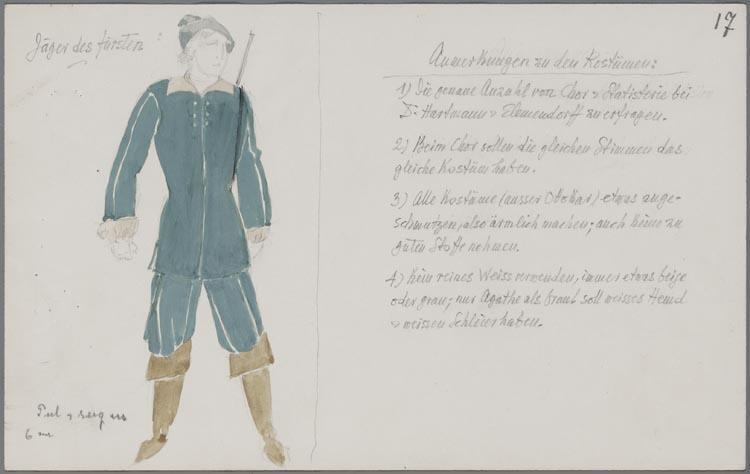 17
Jäger des Fürsten:
Anmerkungen zu den Kostümen:
1) Die genaue Anzahl von Chor & Statisterie bei
Dr Hartmann & Elmendorff zu erfragen.
2) Beim Chor sollen die gleichen Stimmen das
gleiche Kostüm haben.
3) Alle Kostüme (ausser Ottokar) etwas ange-
schmutzen, also ärmlich machen; auch keine zu
guten Stoffe nehmen.
4) Kein reines Weiss verwenden, immer etwas beige
oder grau; nur Agathe als Braut soll weisses Hemd
& weissen Schleier haben.
6